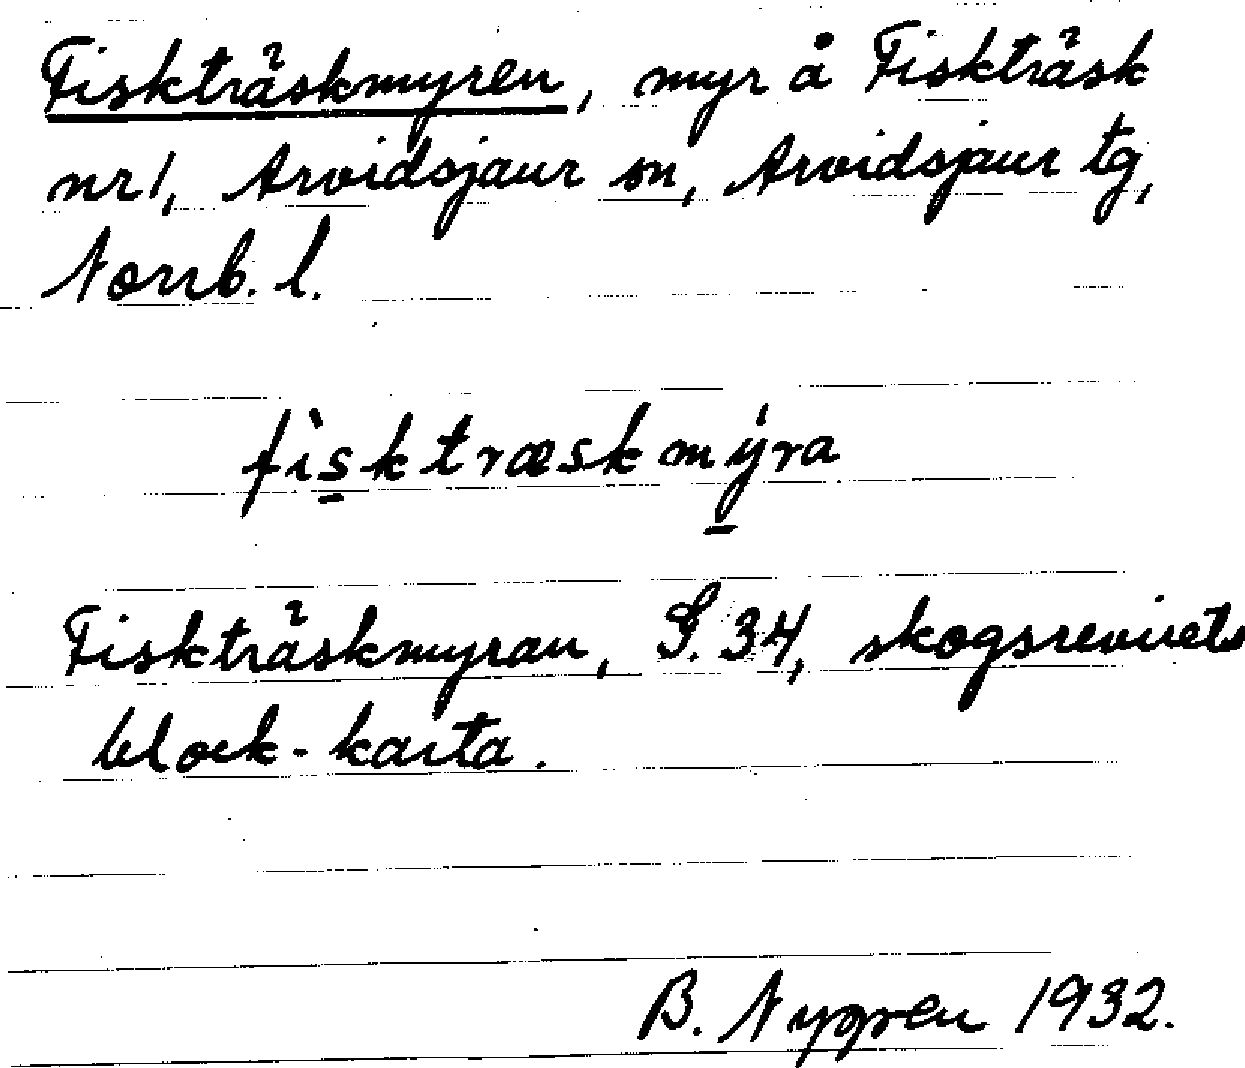 Fiskträskmyren, myr å Fiskträsk
nr 1, Arvidsjaur sn, Arvidsjaur tg,
Norrb. l.
fìsktræskmýra
Fiskträskmyran, S. 34, skogsrevirets
block-karta.
B. Nygren 1932.